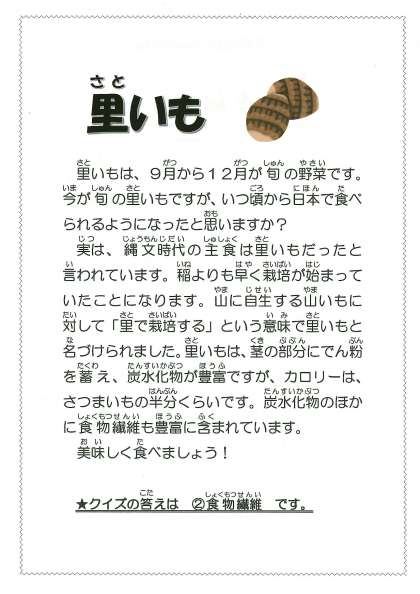 里いも
里いもは、９月から１２月が旬の野菜です。
今が旬の里いもですが、いつ頃から日本で食べ
られるようになったと思いますか？
実は、縄文時代の主食は里いもだったと
言われています。稲よりも早く栽培が始まって
いたことになります。山に自生する山いもに
対して「里で栽培する」という意味で里いもと
名づけられました。里いもは、茎の部分にでん粉
を蓄え、炭水化物が豊富ですが、カロリーは、
さつまいもの半分くらいです。炭水化物のほか
に食物繊維も豊富に含まれています。
美味しく食べましょう！
★クイズの答えは　②食物繊維　です。